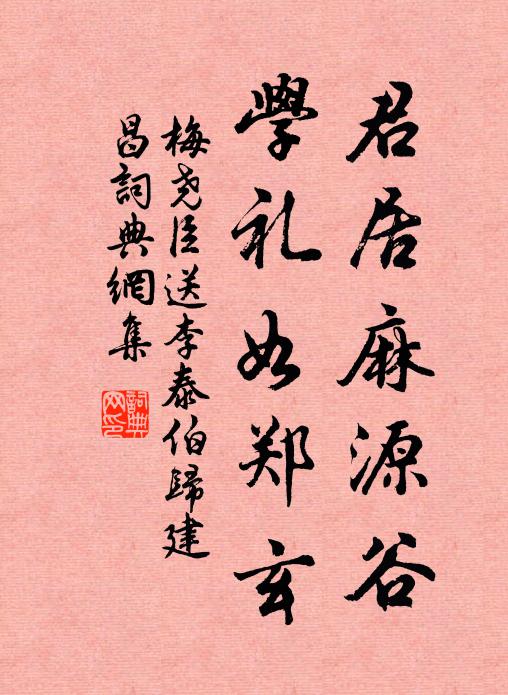 君居麻源谷
学礼如郑玄
梅尧臣送李泰伯歸建
昌詞典網集
詞典
网印